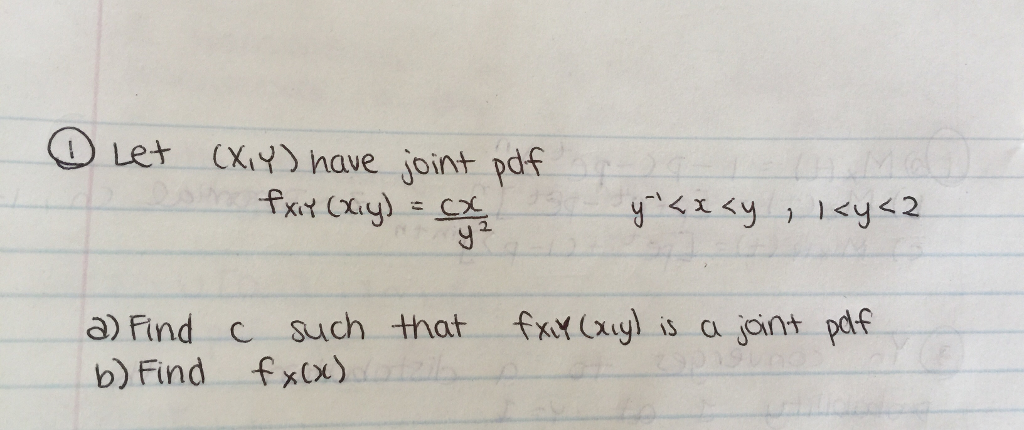 ① Let (X,Y) have joint pdf
fX,Y (x,y) = cx/y² y⁻¹<x<y , 1<y<2
a) Find c such that fX,Y (x,y) is a joint pdf
b) Find fX(x)